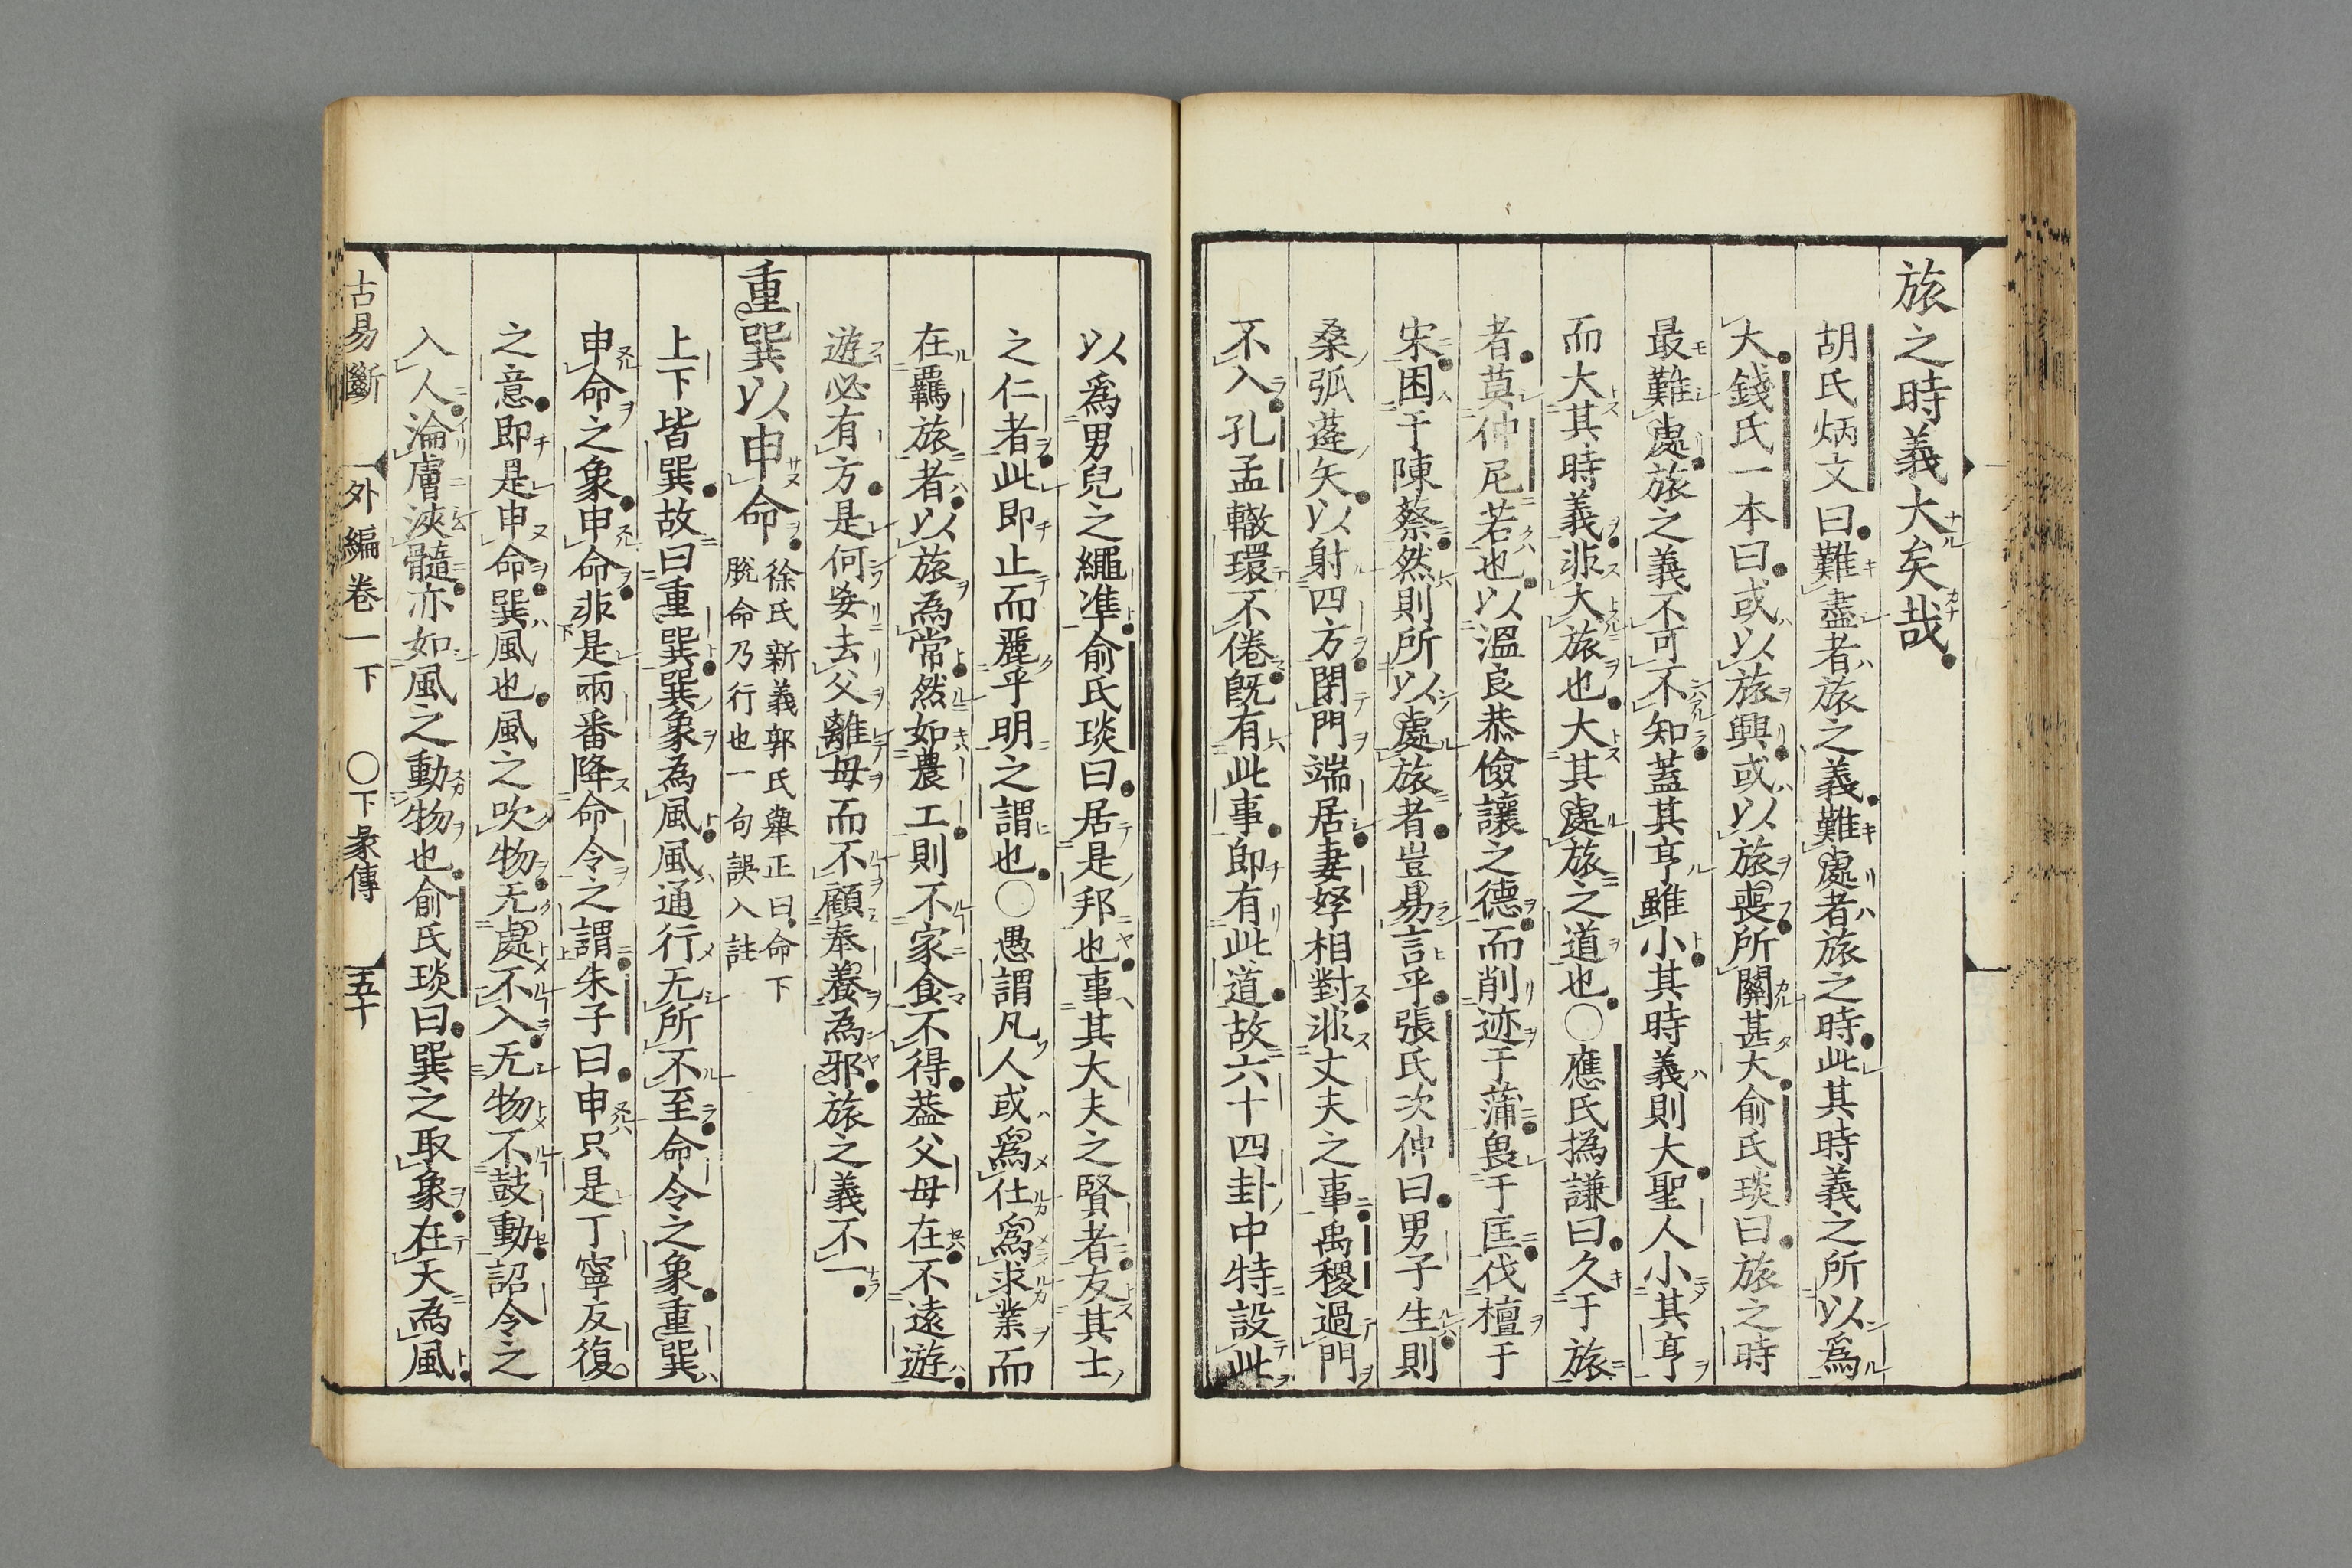 旅之時義大矣哉
胡氏炳文曰難盡者旅之義難處者旅之時此其時義之所以爲
大錢氏一本曰或以旅興或以旅喪所關甚大俞氏琰曰旅之時
最難處旅之義不可不知蓋其亨雖小其時義則大聖人小其亨
而大其時義非大旅也大其處旅之道也〇應氏撝謙曰久于旅
者莫仲尼若也以溫良恭儉讓之德而削迹于蒲畏于匡伐檀于
宋困于陳蔡然則所以處旅者豈易言乎張氏次仲曰男子生則
桑弧蓬矢以射四方閉門端居妻孥相對非丈夫之事禹稷過門
不入孔孟轍環不倦既有此事即有此道故六十四卦中特設此
以爲男兒之繩準俞氏琰曰居是邦也事其大夫之賢者友其士
之仁者此即止而麗乎明之謂也〇愚謂凡人或爲仕爲求業而
在羈旅者以旅為常然如農工則不家食不得蓋父母在不遠遊
遊必有方是何妄去父離母而不顧奉養為邪旅之義不一
重巽以申命
徐氏新義郭氏舉正曰命下
脫命乃行也一句誤入註
上下皆巽故曰重巽巽象為風風通行无所不至命令之象重巽
申命之象申命非是兩番降命令之謂朱子曰申只是丁寧反復
之意即是申命巽風也風之吹物无處不入无物不鼓動詔令之
入人淪膚浹髓亦如風之動物也俞氏琰曰巽之取象在天為風
古易斷 外編卷一下 〇下彖傳 五十